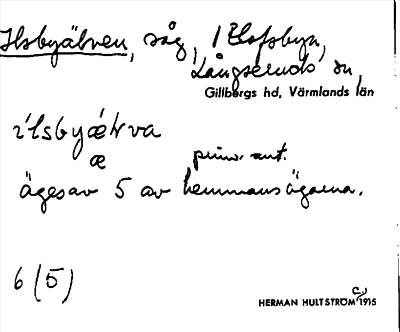 Ilsbyälven, såg, i Olofsbyn,
Långseruds sn,
Gillbergs hd, Värmlands län
æ
prim. ant.
äges av 5 av hemmansägarna.
6 (5)
HERMAN HULTSTRÖM 1915